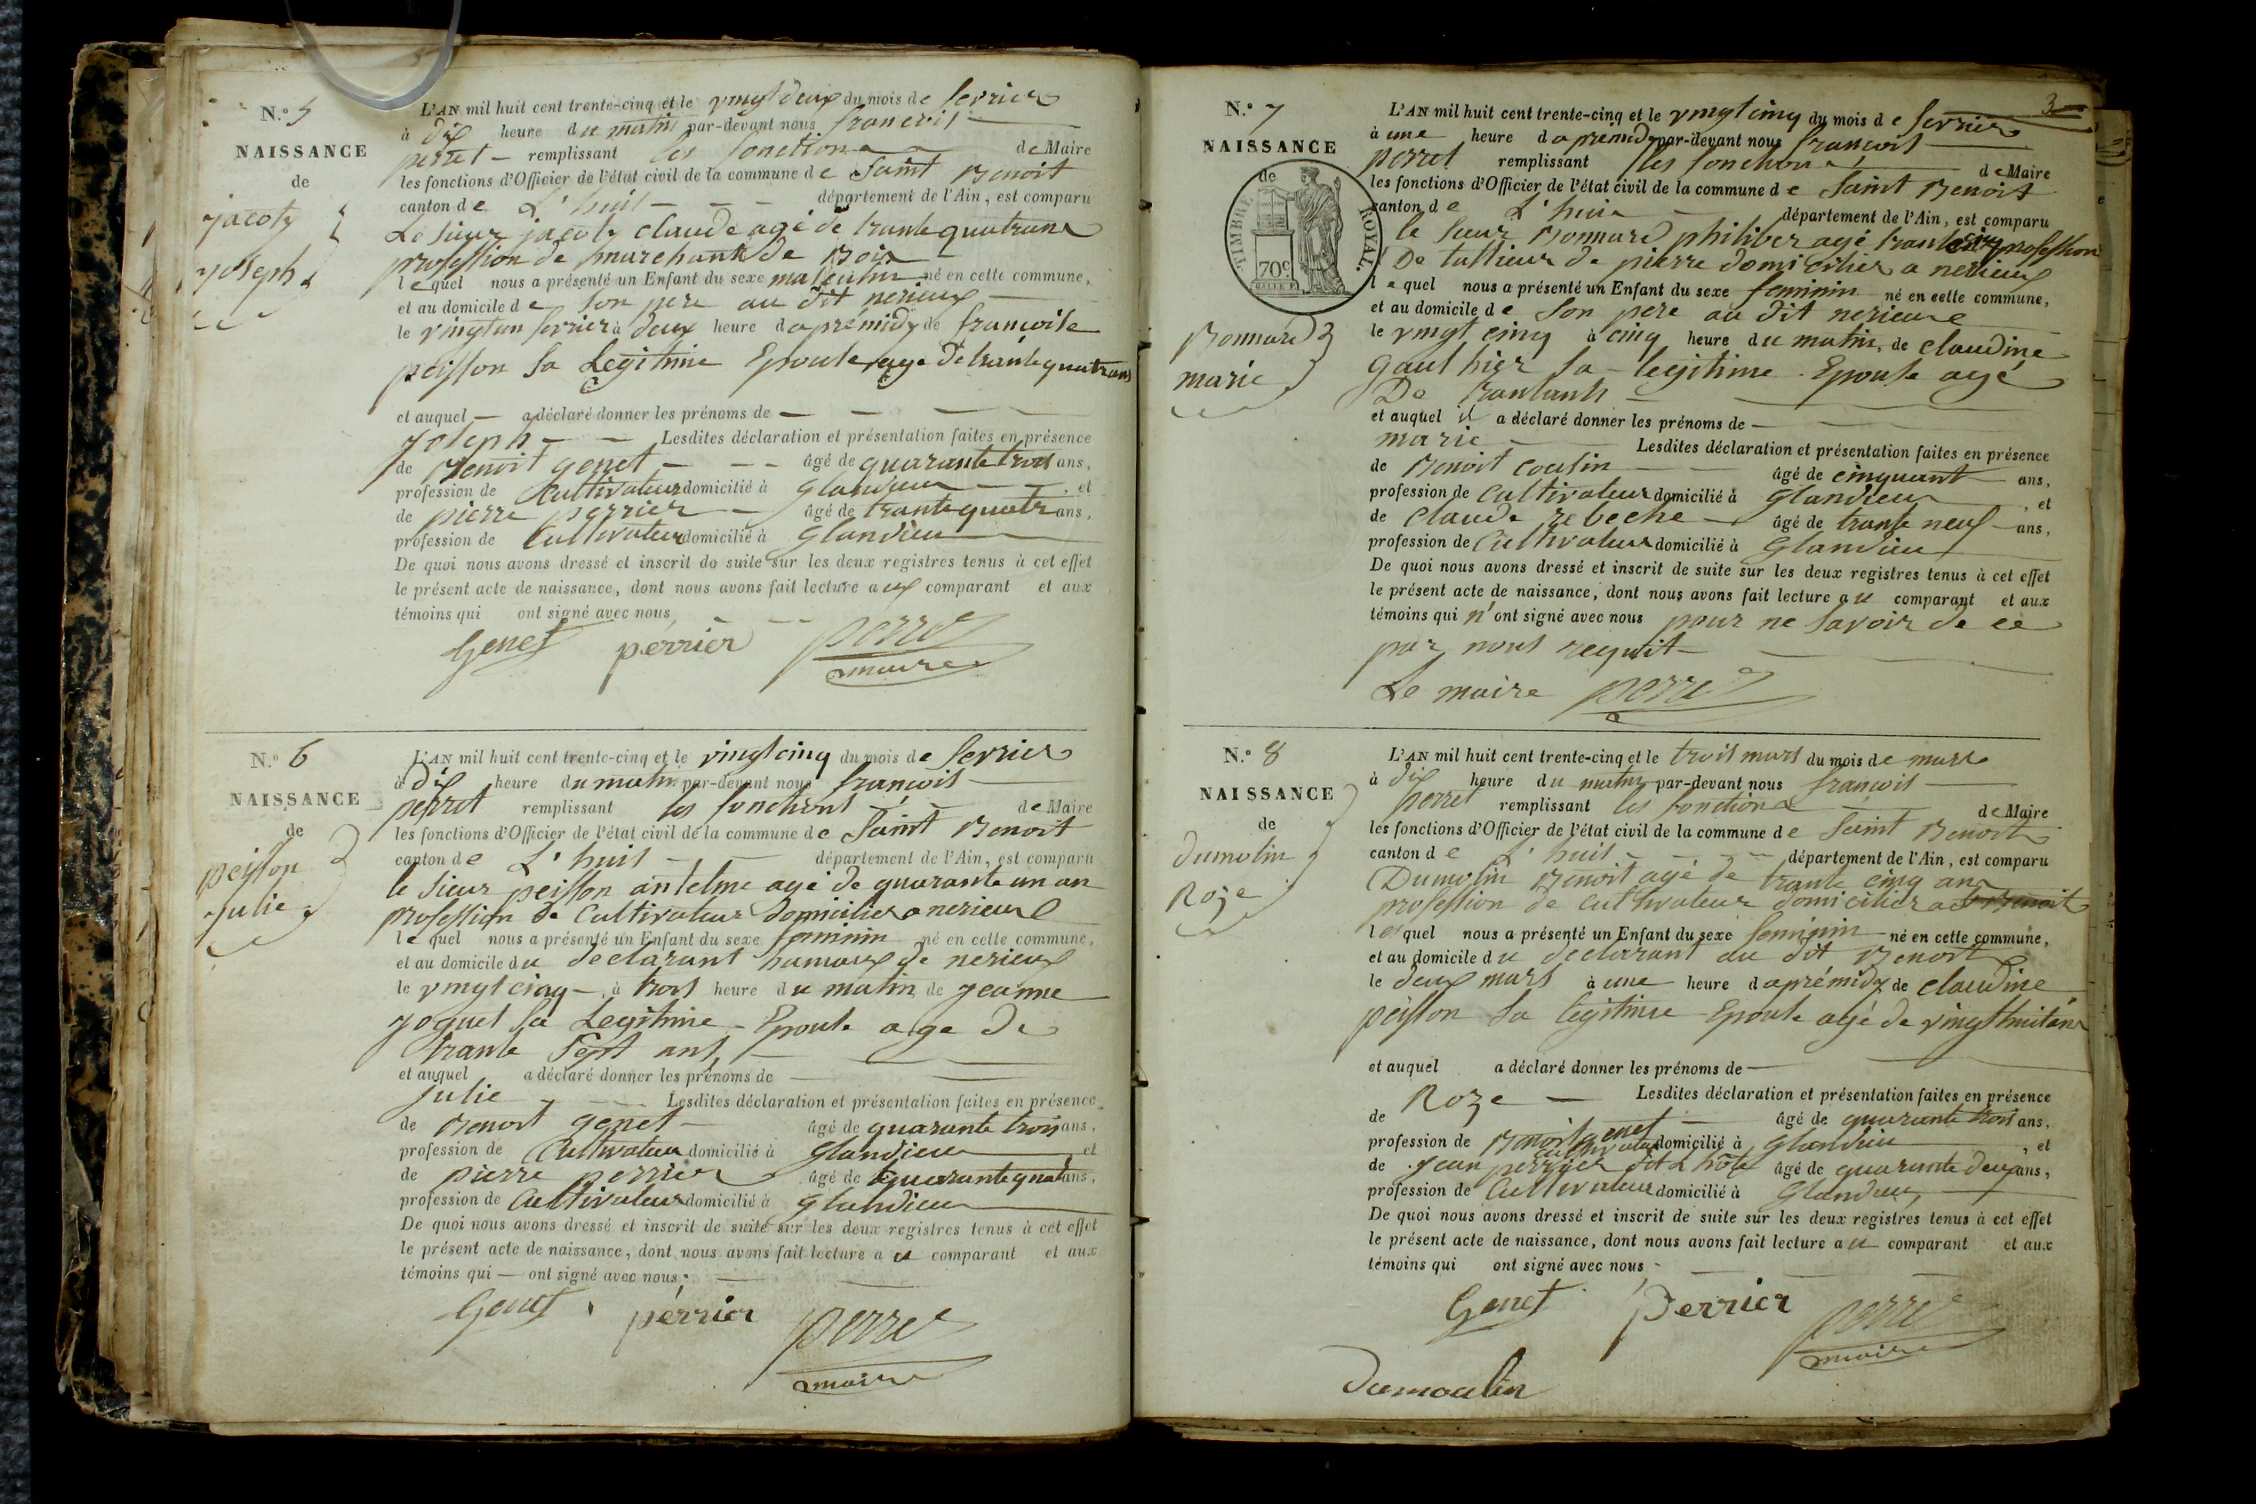 N.º 5
NAISSANCE
de
jacoty
joseph
L'AN mil huit cent trente-cinq et le vingt deux du mois de fevrier
à dix heure du matin par-devant nous francois
perret remplissant les fonctions de Maire
les fonctions d'Officier de l'état civil de la commune de Saint Benoit
canton de L'huis département de l'Ain, est comparu
Le Sieur jacoty claude agé de trante quatrans
profession de marchand de Bois
lequel nous a présenté un Enfant du sexe masculin né en cette commune,
et au domicile de son pere au dit nerieux
le vingtun fevrier à deux heure d aprémidy de francoise
peisson sa Legitime Epouse age de trante quatrans
et auquel a déclaré donner les prénoms de
joseph Lesdites déclaration et présentation faites en présence
de Benoit genet âgé de quarante trois ans,
profession de Cultivateur domicilié à glandieu , et
de pierre perrier âgé de trante quatr ans,
profession de Cultivateur domicilié à glandieu
De quoi nous avons dressé et inscrit de suite sur les deux registres tenus à cet effet
le présent acte de naissance, dont nous avons fait lecture aux comparant et aux
témoins qui ont signé avec nous
Genet perrier perret
maire
N.º 6
NAISSANCE
de
peisson
julie
L'AN mil huit cent trente-cinq et le vingt cinq du mois de fevrier
à dix heure du matin par-devant nous francois
perret remplissant les fonctions de Maire
les fonctions d'Officier de l'état civil de la commune de Saint Benoit
canton de L'huis département de l'Ain, est comparu
le Sieur peisson antelme agé de quarante un an
profession de Cultivateur domicilier a nerieux
lequel nous a présenté un Enfant du sexe feminin né en cette commune,
et au domicile du declarant hamaux de nerieux
le vingt cinq à trois heure du matin de jeanne
joguet sa Legitime Epouse age de
trante sept ans
et auquel a déclaré donner les prénoms de
julie Lesdites déclaration et présentation faites en présence
de Benoit genet âgé de quarante trois ans,
profession de Cultivateur domicilié à glandieu et
de pierre perrier âgé de quarante quatr ans,
profession de Cultivateur domicilié à glandieu
De quoi nous avons dressé et inscrit de suite sur les deux registres tenus à cet effet
le présent acte de naissance, dont nous avons fait lecture au comparant et aux
témoins qui ont signé avec nous
Genet perrier perret
maire
3
N.º 7
NAISSANCE
de
TIMBRE ROYAL.
70c
Bonnard
marie
L'AN mil huit cent trente-cinq et le vingt cinq du mois de fevrier
à une heure d apremidy par-devant nous francois
perret remplissant les fonction de Maire
les fonctions d'Officier de l'état civil de la commune de Saint Benoit
canton de L'huis département de l'Ain, est comparu
le Sieur Bonnard philiber agé trante six profession
De tallieur de pierre domicilier a nerieux
lequel nous a présenté un Enfant du sexe feminin né en cette commune,
et au domicile de son pere au dit nerieux
le vingt cinq à cinq heure du matin de claudine
gauthier sa legitime Epouse agé
De trantants
et auquel il a déclaré donner les prénoms de
marie Lesdites déclaration et présentation faites en présence
de Benoit cousin âgé de cinquant ans,
profession de Cultivateur domicilié à glandieu , et
de claude rebeche âgé de trante neuf ans,
profession de Cultivateur domicilié à glandieu
De quoi nous avons dressé et inscrit de suite sur les deux registres tenus à cet effet
le présent acte de naissance, dont nous avons fait lecture au comparant et aux
témoins qui n'ont signé avec nous pour ne savoir de ce
par nous requit
Le maire perret
N.º 8
NAISSANCE
de
dumolin
Roze
L'AN mil huit cent trente-cinq et le trois mars du mois de mars
à dix heure du matin par-devant nous francois
perret remplissant les fonctions de Maire
les fonctions d'Officier de l'état civil de la commune de Saint Benoit
canton de L'huis département de l'Ain, est comparu
Dumolin Benoit agé de trante cinq ans
profession de cultivateur domicilier a Benoit
lequel nous a présenté un Enfant du sexe feminin né en cette commune,
et au domicile du declarant au dit Benoit
le deux mars à une heure d aprémidy de claudine
peisson sa legitime Epouse agé de vingthuitans
et auquel a déclaré donner les prénoms de
Roze Lesdites déclaration et présentation faites en présence
de Benoit genet âgé de quarante trois ans,
profession de cultivateur domicilié à glandieu , et
de jean perrier dit L'hôte âgé de quarante deux ans,
profession de Cultivateur domicilié à glandieu
De quoi nous avons dressé et inscrit de suite sur les deux registres tenus à cet effet
le présent acte de naissance, dont nous avons fait lecture au comparant et aux
témoins qui ont signé avec nous
Genet Perrier perret
maire
dumoulin